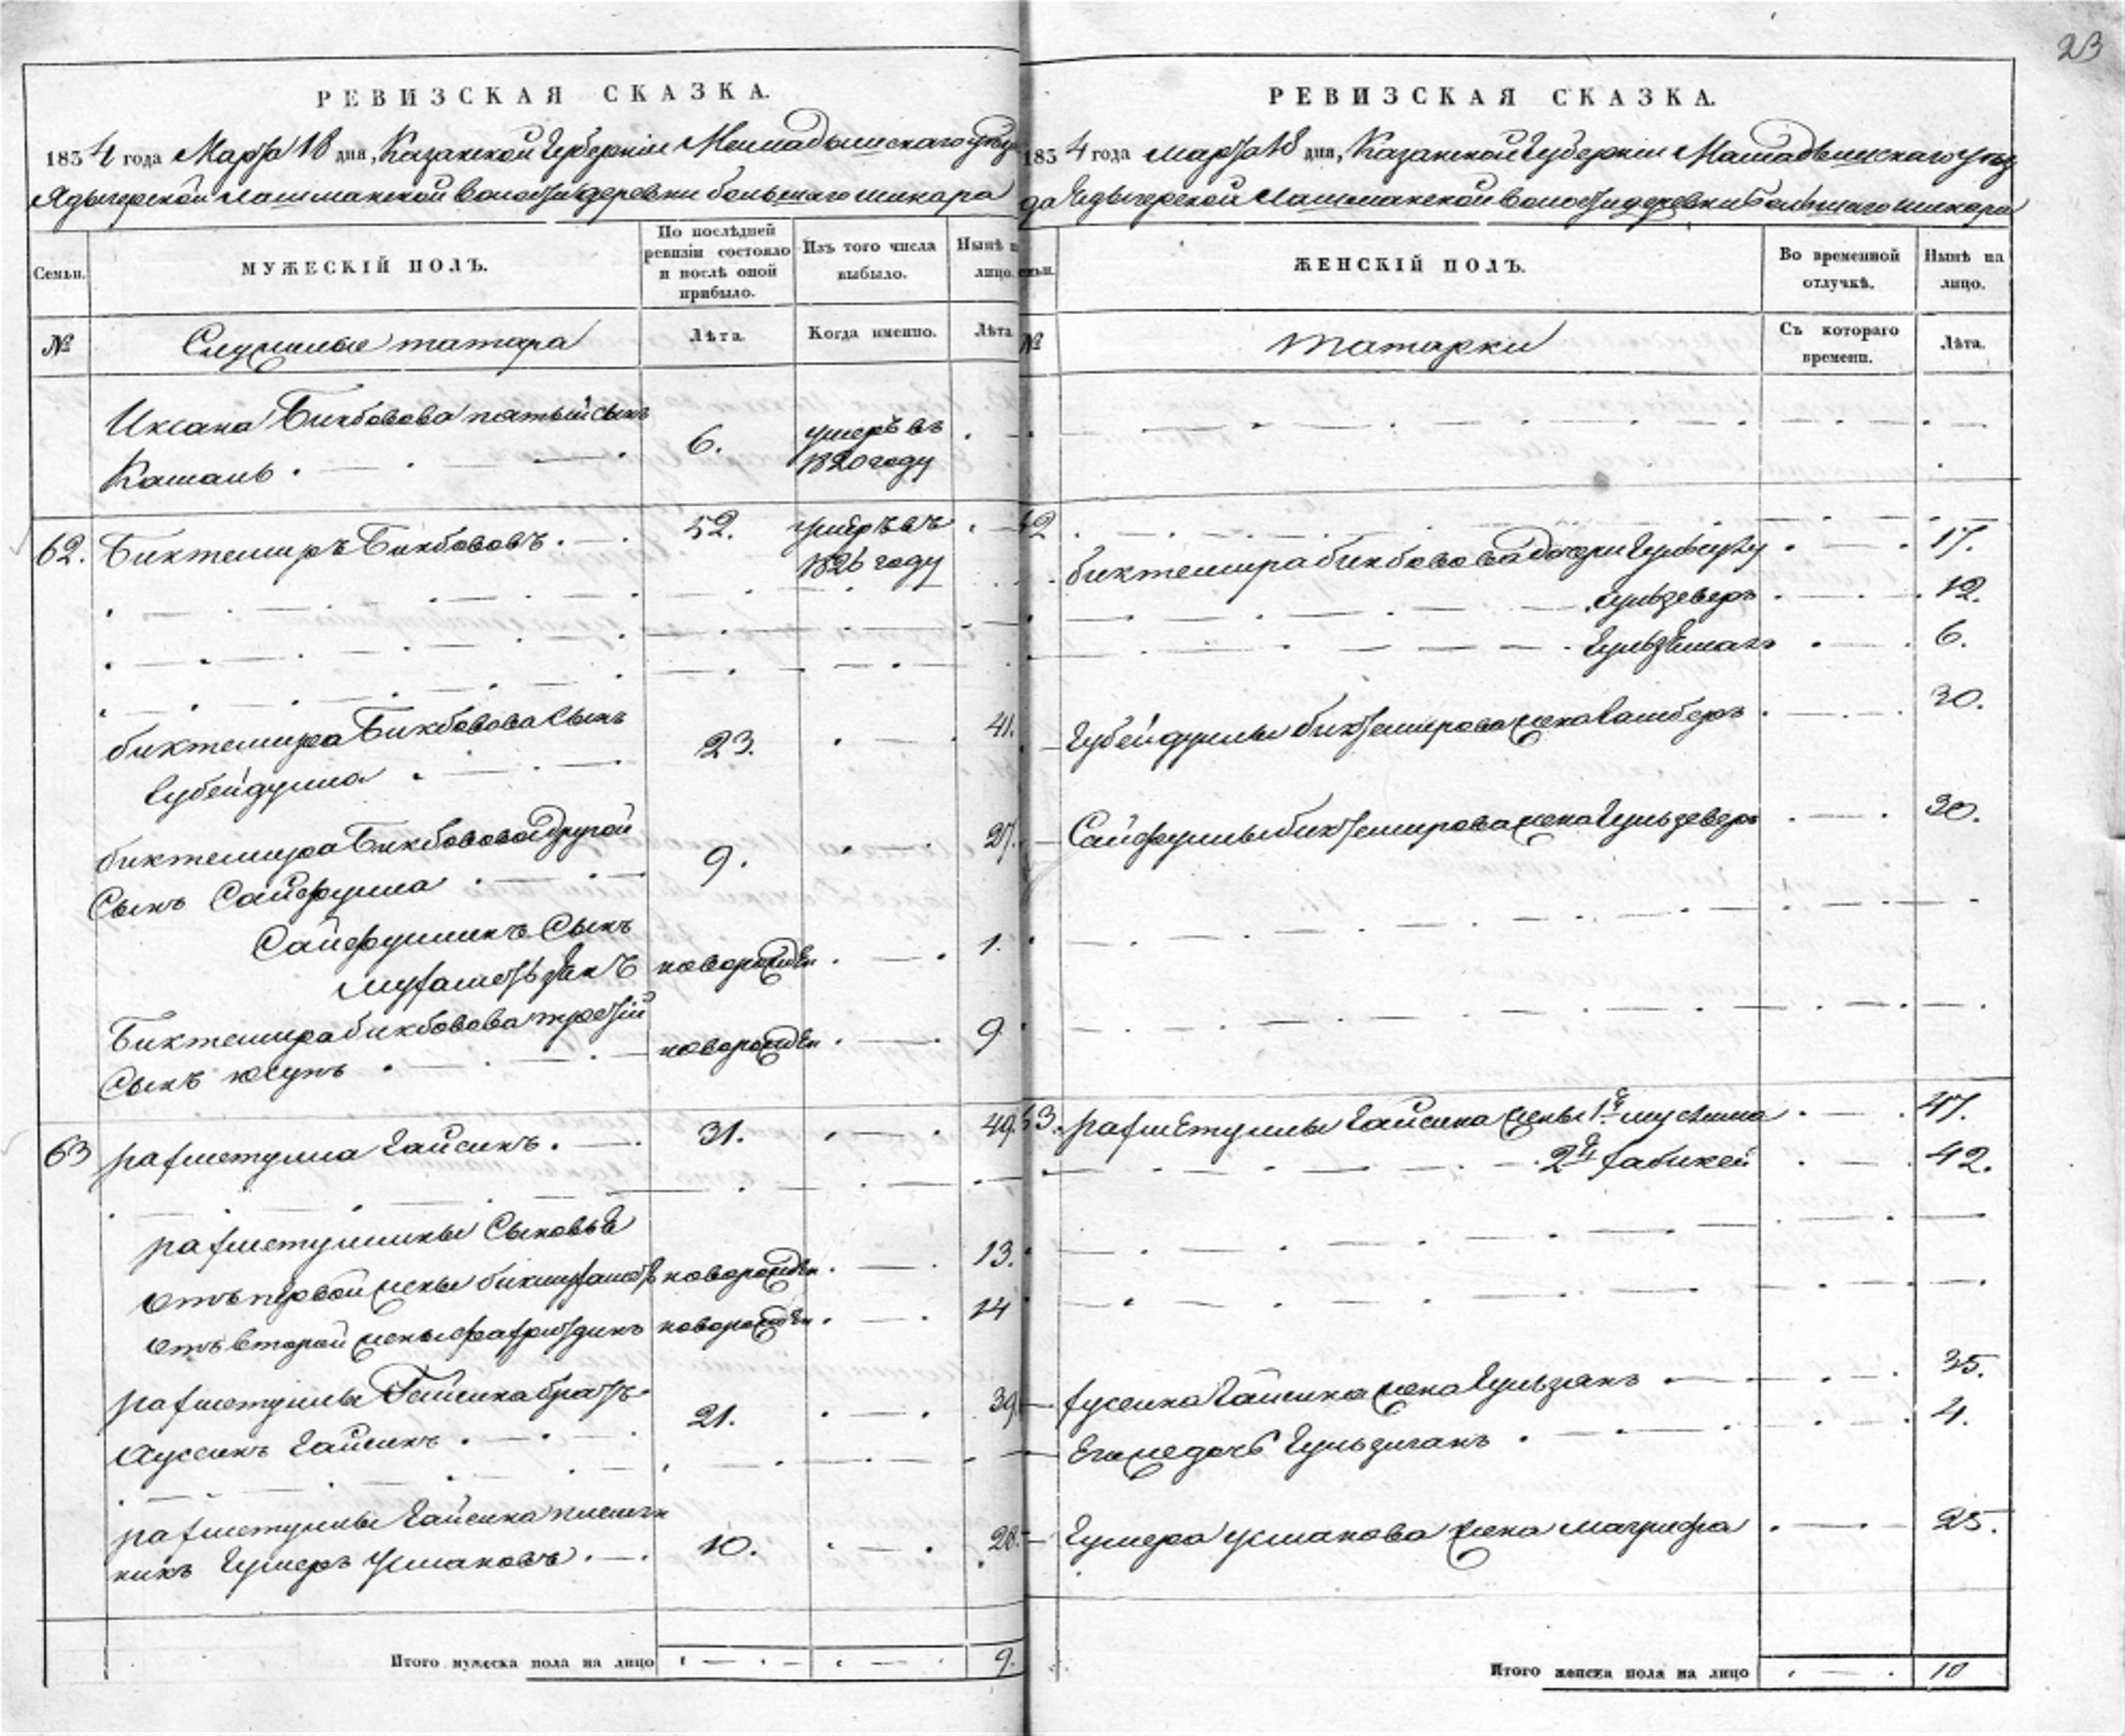 23
РЕВИЗСКАЯ СКАЗКА.
1834 года Марта 18 дня, Казанской Губерніи Мамадышскаго уѣз
Ядыгерской Лашманской волости деревни большаго шикара
Семьи.
МУЖЕСКІЙ ПОЛЪ.
По послѣдней ревизіи состояло и послѣ оной прибыло.
Изъ того числа выбыло.
Нынѣ на лицо.
№
Служилые татара
Лѣта.
Когда именно.
Лѣта
Иксана Бикбовова пятый сынъ
6.
умеръ въ
1820 году
62. Биктемиръ Бикбововъ.
52.
умеръ въ
1826 году
биктемира Бикбовова сынъ
Губейдулла
23.
41.
биктемира Бикбовова другой
сынъ Сайфулла
9.
27.
Сайфуллинъ сынъ
новорожден
1.
Биктемира бикбовова третій
сынъ юсупъ
новорожден
9
63 рахметулла Гайсинъ.
31.
49.
рахметуллины сыновья
отъ первой жены новорожден
13.
отъ второй жены новорожден
14
рахметуллы Гайсина братъ
Хуссинъ Гайсинъ.
21.
39.
рахметуллы Гайсина племян
никъ Гумеръ Усмановъ.
10.
28.
Итого мужеска пола на лицо
9.
РЕВИЗСКАЯ СКАЗКА.
1834 года марта 18 дня, Казанской Губерніи Мамадышскаго уѣз
да Ядыгерской Лашманской волости деревни Большаго шикара
ЖЕНСКІЙ ПОЛЪ.
Во временной отлучкѣ.
Нынѣ на лицо.
№
татарки
Съ котораго времени.
Лѣта.
62
биктемира бикбовова дочери
17.
Гульзеверъ
12.
6.
Губейдуллы биктемирова жена
30.
Сайфуллы биктемирова жена Гульзеверъ
20.
63. рахметуллы Гайсина жены 1я
47.
2я хабикей
42.
хусеина Гайсина жена
35.
Его же дочь
4.
Гумера усманова жена магруфа
25.
Итого женска пола на лицо
10